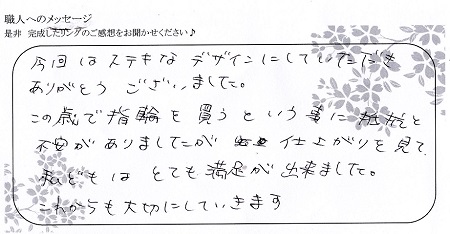 職人へのメッセージ
是非 完成したリングのご感想をお聞かせください♪
今回はステキなデザインにしていただき
ありがとうございました。
この歳で指輪を買うという事に抵抗と
不安がありましたが 仕上がりを見て、
私どもはとても満足が出来ました。
これからも大切にしていきます